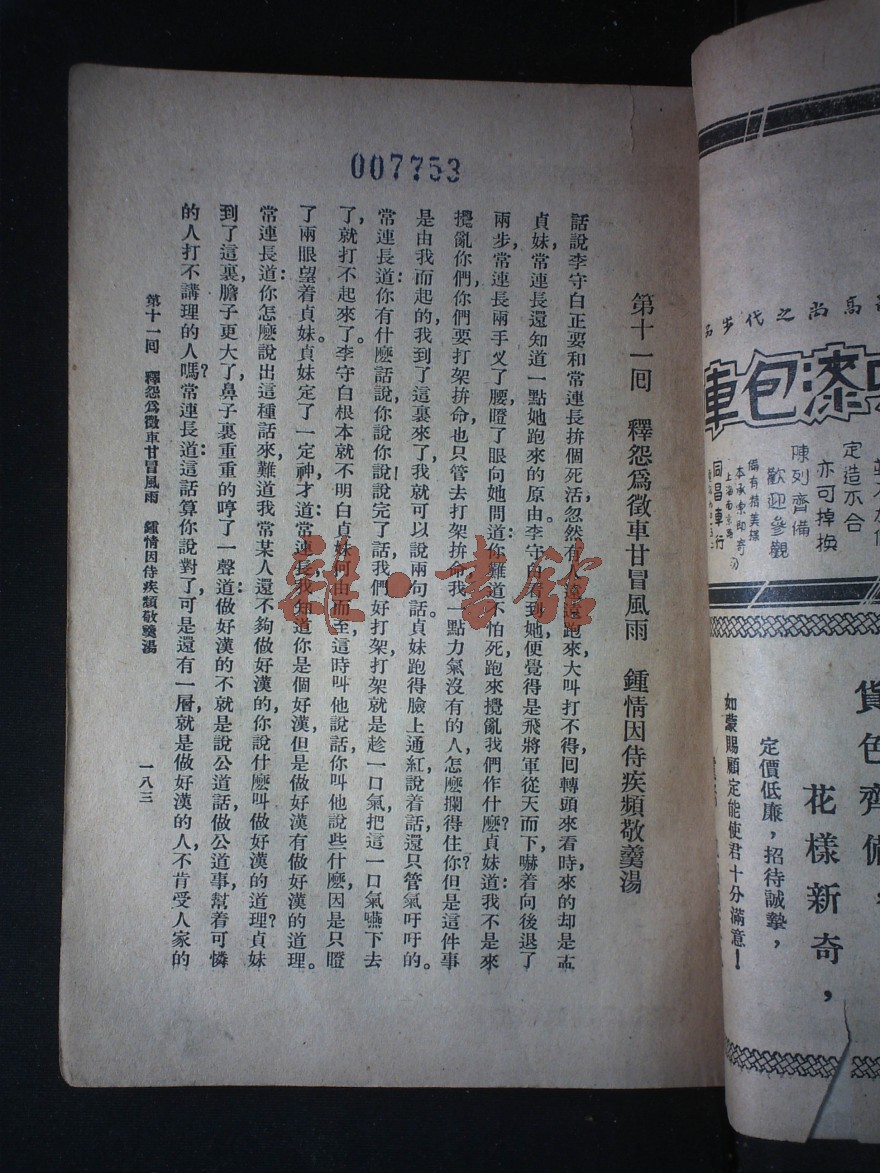 007753
第十一囘　釋怨爲徵車甘冒風雨　鍾情因侍疾頻敬羹湯
話說李守白正要和常連長拚個死活忽然有人遠遠跑來大叫打不得回轉頭來看時，來的却是孟
貞妹，常連長還知道一點她跑來的原由。李守白看到她，便覺得是飛將軍從天而下，嚇着向後退了
兩步，常連長兩手叉了腰，瞪了眼向她問道：你難道不怕死，跑來攪亂我們作什麽？貞妹道：我不是來
攪亂你們，你們要打架拚命，也只管去打架拚命，我一點力氣沒有的人，怎麽攔得住你？但是這件事
是由我而起的，我到了這裏來了，我就可以說兩句話。貞妹跑得臉上通紅，說着話，還只管氣吁吁的。
常連長道：你有什麽話說，你說你說！說完了話，我們好打架，打架就是趁一口氣，把這一口氣嚥下去
了，就打不起來了。李守白根本就不明白貞妹何由而至，這時叫他說話，你叫他說些什麽，因是只瞪
了兩眼望着貞妹，貞妹定了一定神，才道：常連長，我知道你是個好漢，但是做好漢有做好漢的道理。
常連長道：你怎麽說出這種話來，難道我常某人還不夠做好漢的，你說什麽叫做好漢的道理？貞妹
到了這裏，膽子更大了，鼻子裏重重的哼了一聲道：做好漢的不就是說公道話，做公道事，幫着可憐
的人，打不講理的人嗎？常連長道：這話算你說對了，可是還有一層，就是做好漢的人，不肯受人家的
第十一囘　釋怨爲徵車甘冒風雨　鍾情因侍疾頻敬羹湯
一八三
雜·書館
高尚之代步
漆包車
定造不合
亦可掉換
陳列齊備
歡迎參觀
備有精美樣
本承索卽寄
上海南京路
同昌車行
貨色齊備，
花樣新奇，
定價低廉，招待誠摯，
如蒙賜顧定能使君十分滿意！